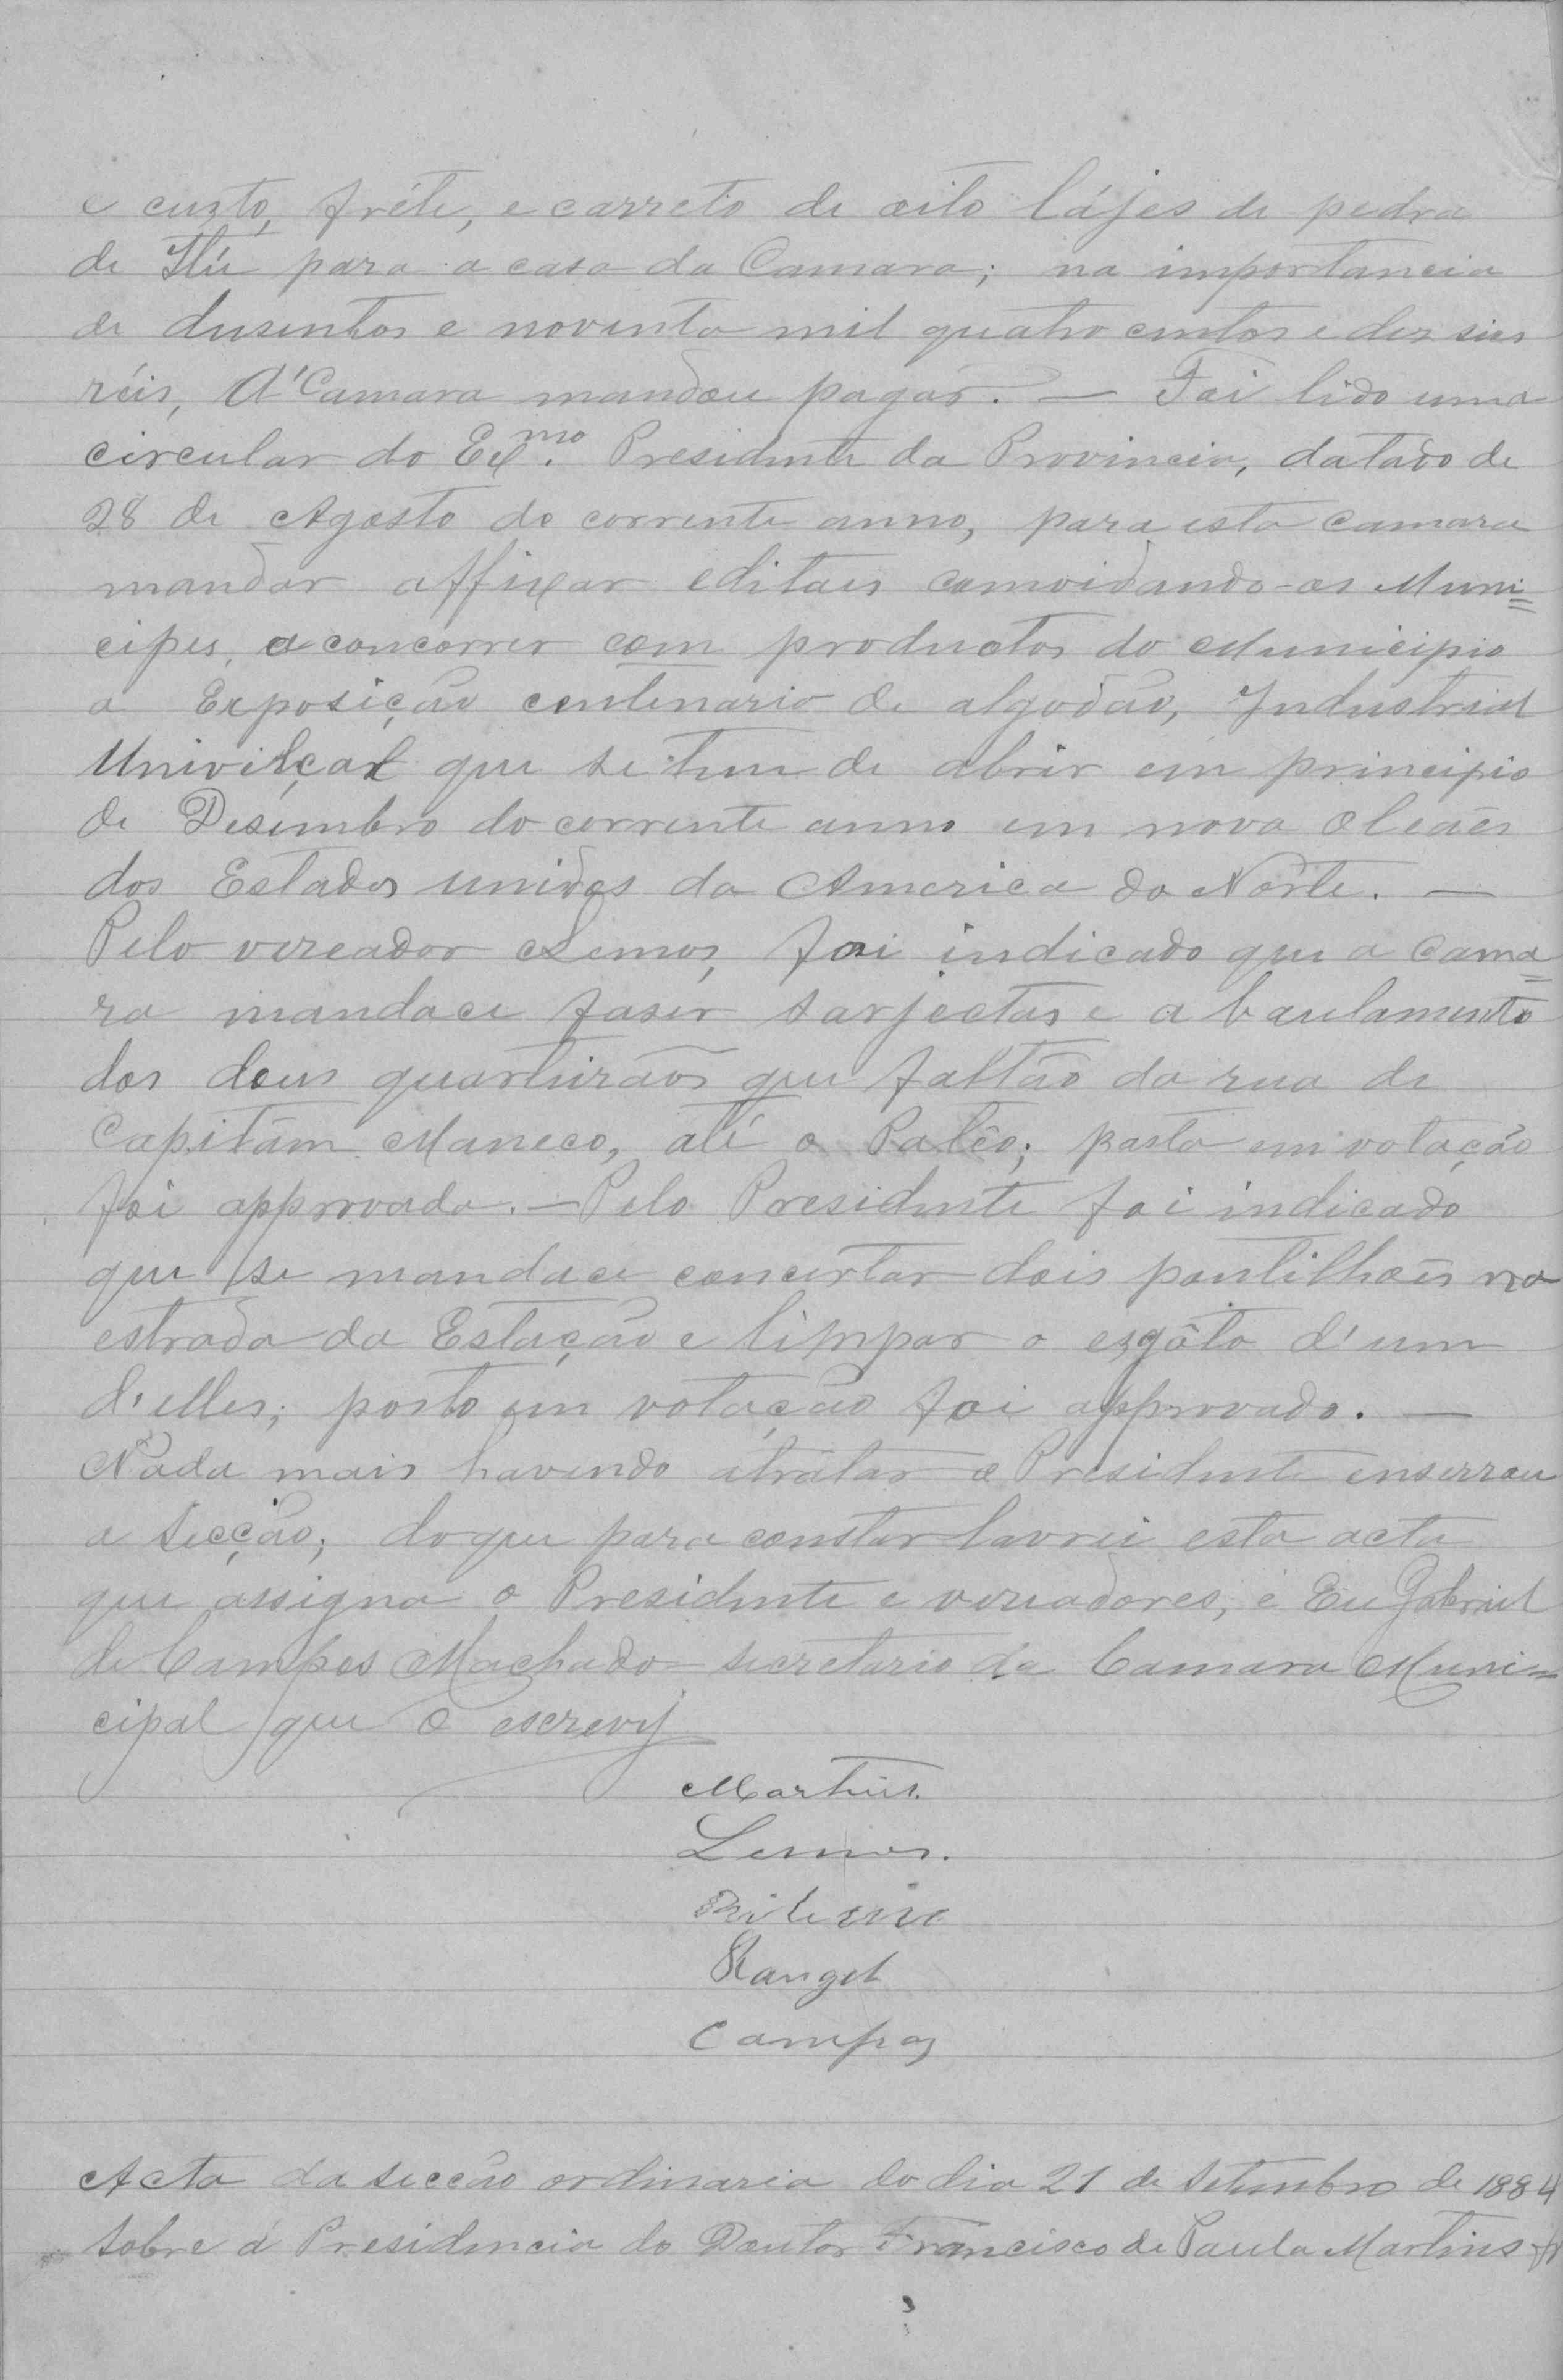 e cuzto, fréte, e carreto de oito lájes de pedra
de Itú para a casa da Camara; na importancia
de dusentos e noventa mil quatro centos e dez seis
réis, A'Camara mandou pagar. — Foi lido uma
circular do Ex.mo Presidente da Provincia, datado de
28 de Agosto do corrente anno, para esta camara
mandar affixar editaes comvidando-os Muni=
cipes, a concorrer com productos do Municipio
a Exposição centenario de algodão, Industrial
Univerçal que se tem de abrir em principio
de Desembro do corrente anno em nova Oleães
dos Estados unidos da America do Norte. —
Pelo vereador Lemos, foi indicado que a Cama=
ra mandace faser sarjectas e abaulamento
dos dous quarteirãos que faltão da rua de
Capitám Maneco, alé o Patêo; posta em votação
foi approvada. — Pelo Presidente foi indicado
que se mandace concertar dois pontilhoẽs na
estrada da Estação e limpar o ezgôto d'um
d'elles; posto em votação foi approvado. —
Nada mais havendo atratar o Presidente enserrou
a Secção; doque para constar lavrei esta acta
que assigna o Presidente e vereadores, e Eu Gabriel
de Campos Machado secretario da Camara Muni=
cipal que o escrevy
Martins.
Lemos.
Rangel
Campos
Acta da secção ordinaria do dia 21 de Setembro de 1884
Sobre á Presidencia do Doutor Francisco de Paula Martins